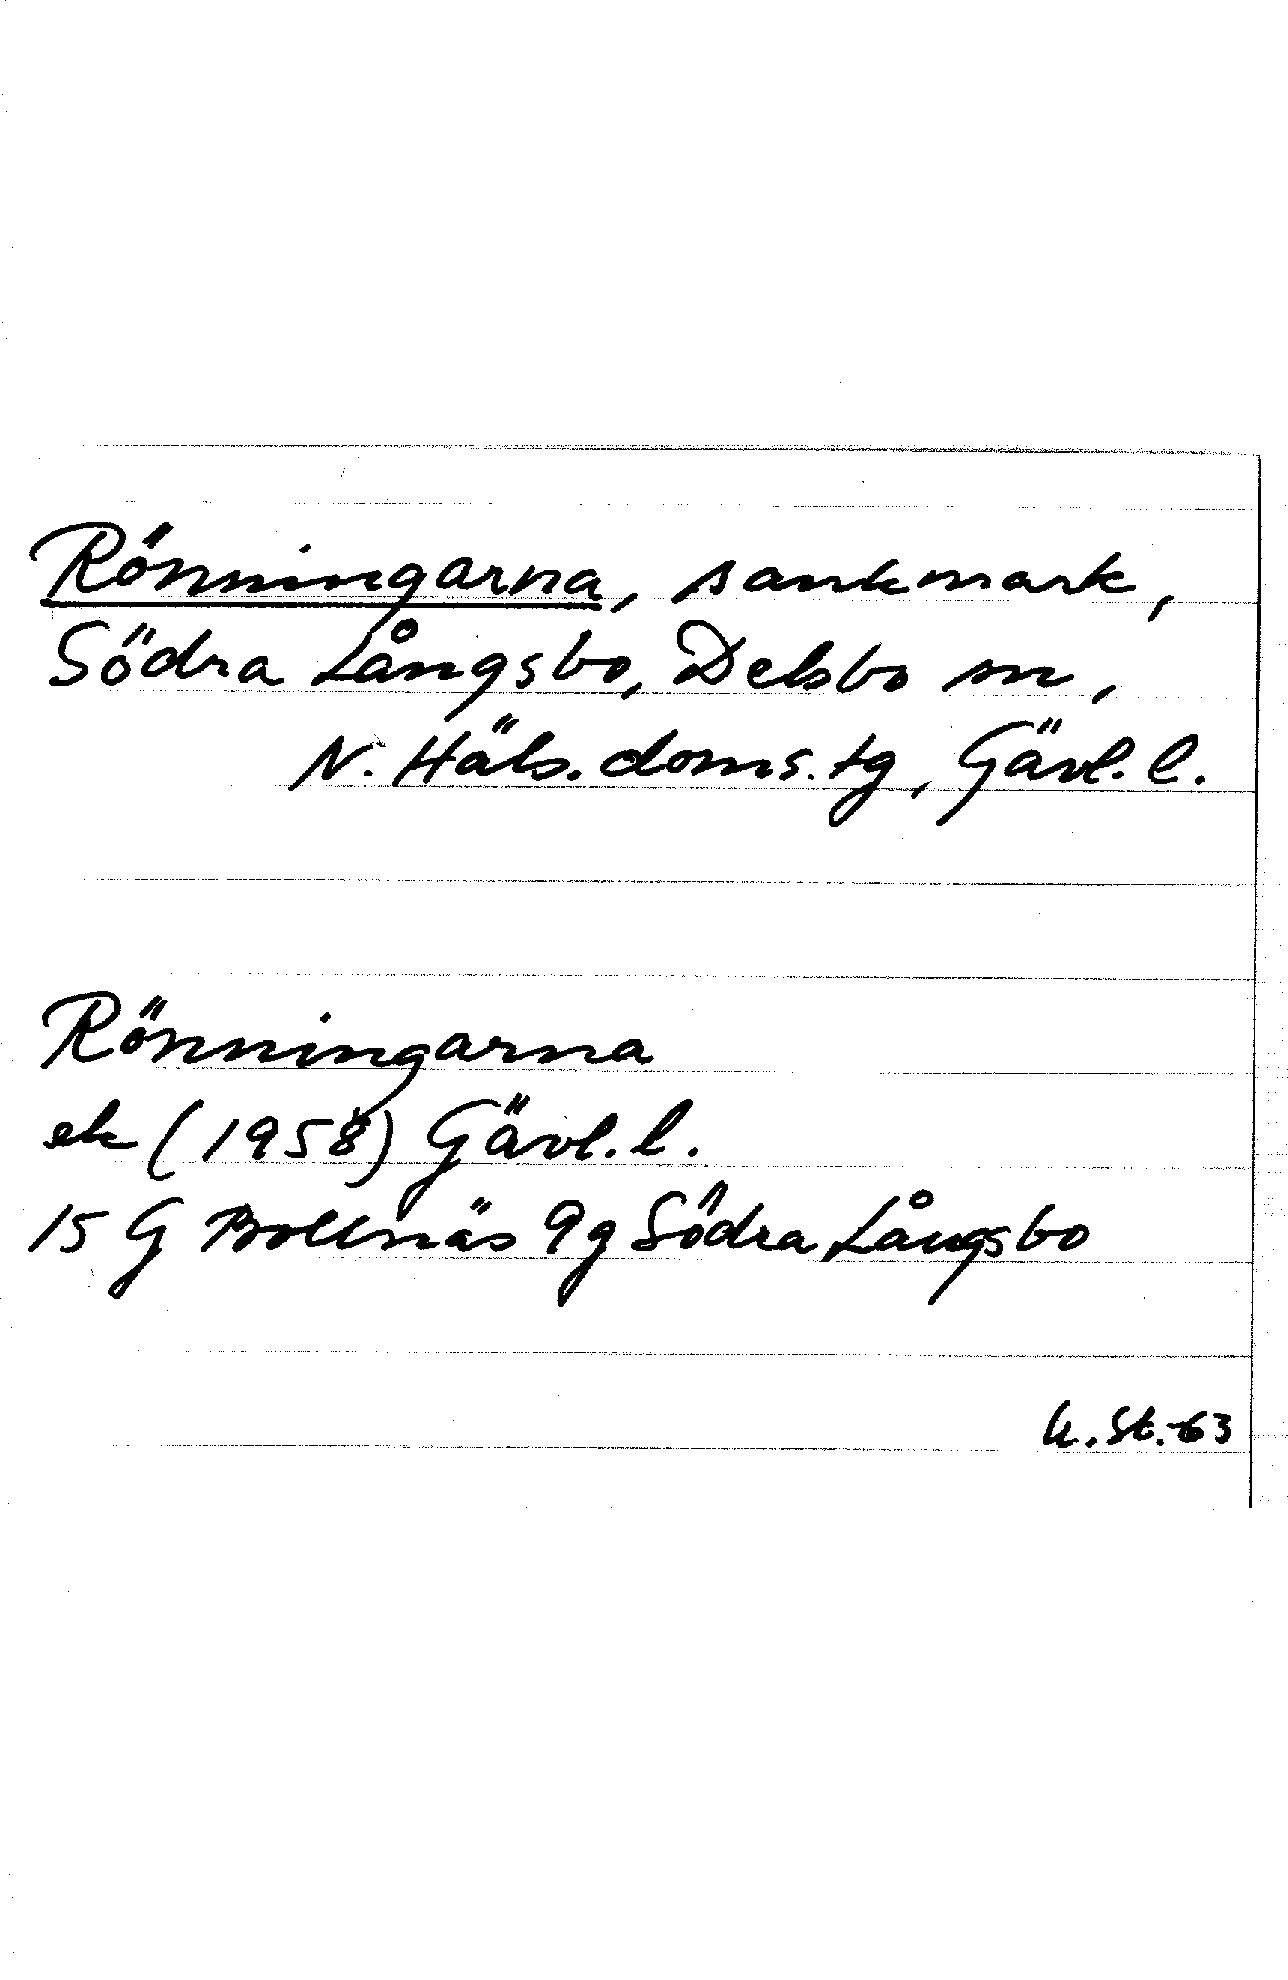 Rönningarna, sankmark,
Södra Långsbo, Delsbo sn,
N. Häls. doms. tg, Gävl. l.
Rönningarna
ek (1958) Gävl. l.
15 G Bollnäs 9g Södra Långsbo
K. St. -63